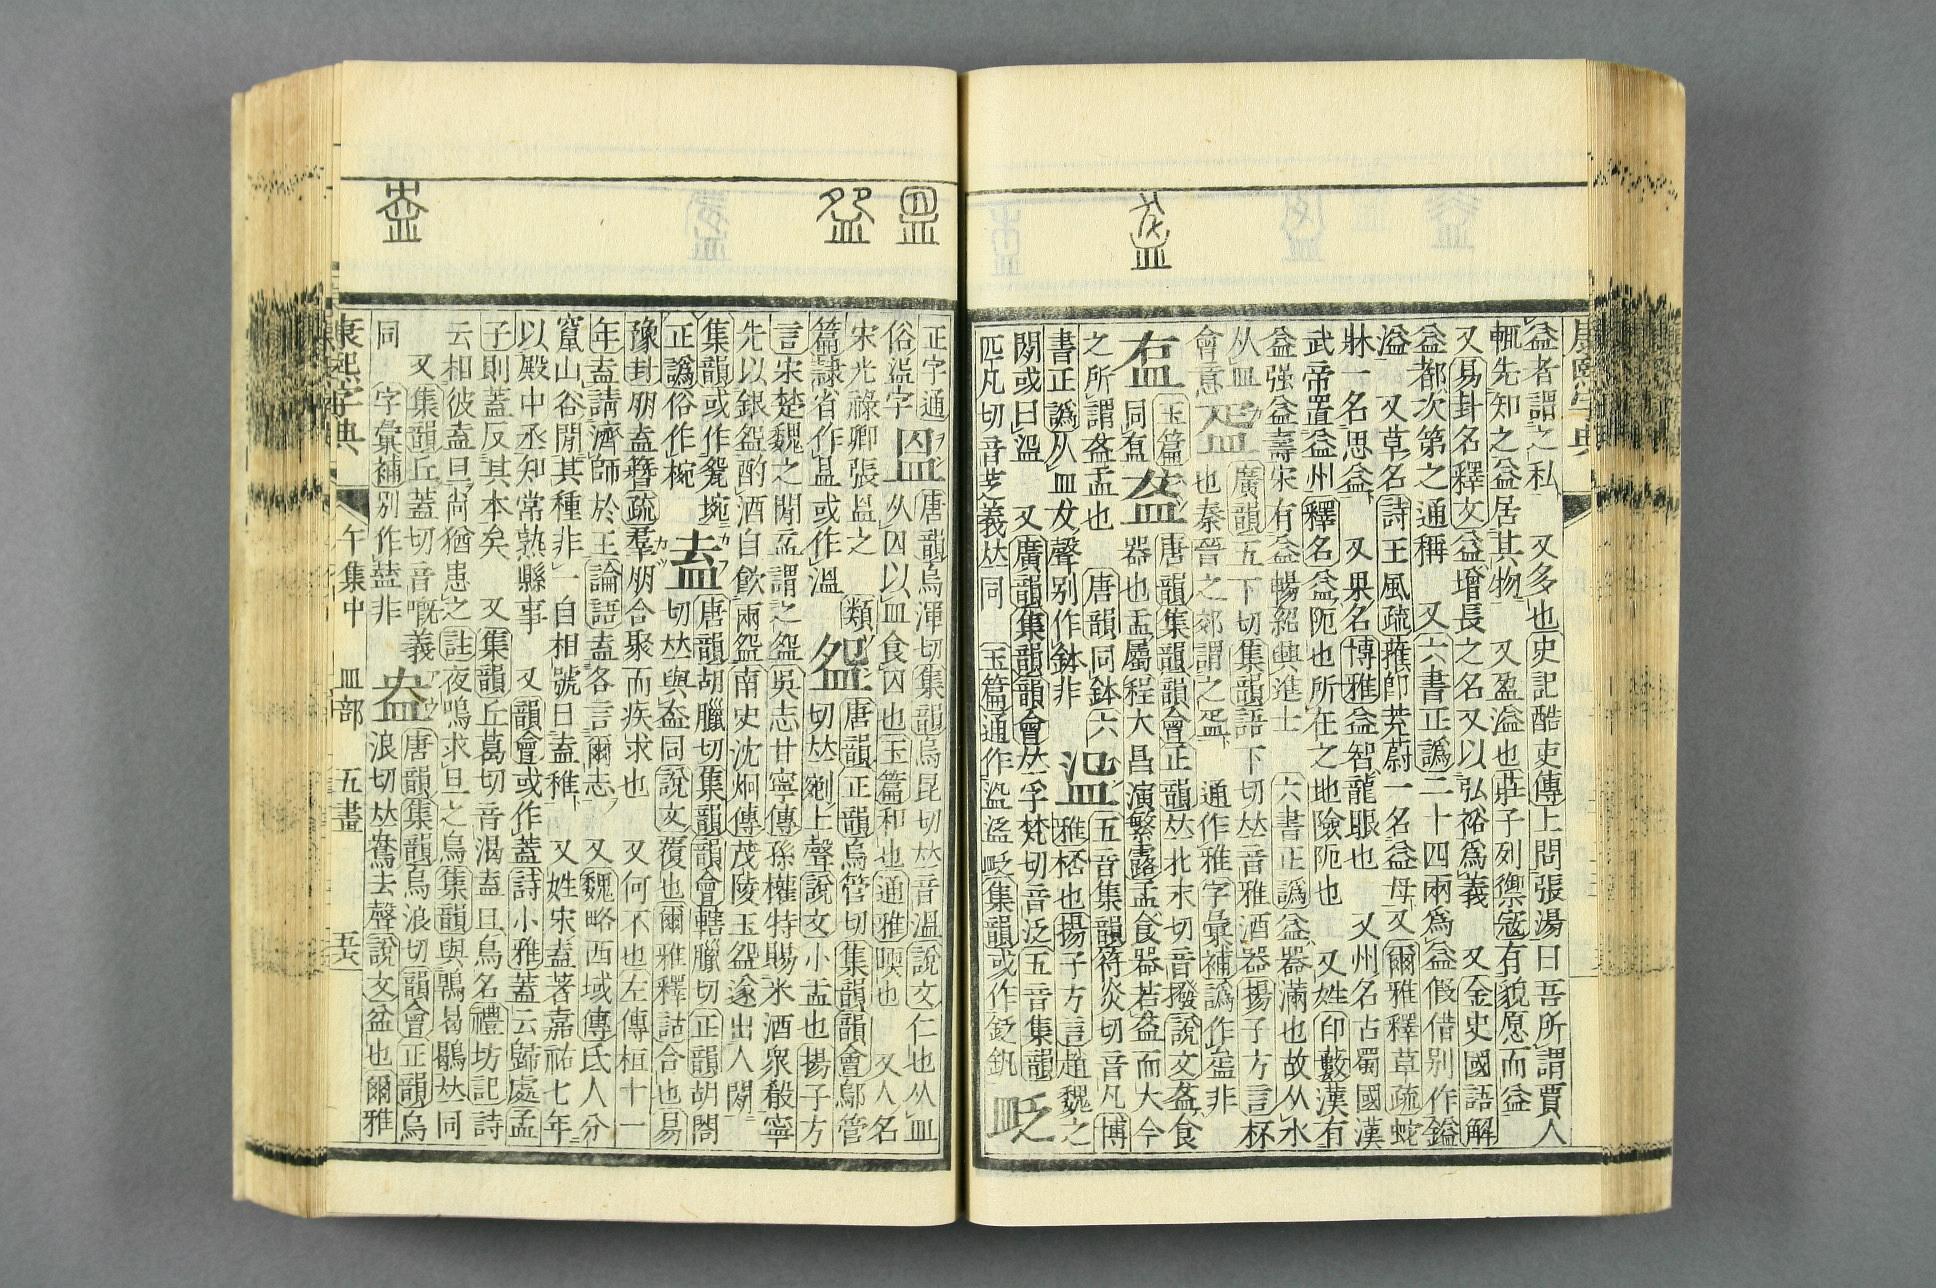 益者謂之私 又多也史記酷吏傳上問張湯曰吾所謂賈人
輒先知之益居其物 又盈溢也莊子列禦寇有貌愿而益
又易卦名釋文益增長之名又以弘裕爲義 又金史國語解
益都次第之通稱 又六書正譌二十四兩爲益假借別作鎰
溢 又草名詩王風疏蓷卽茺蔚一名益母又爾雅釋草疏蛇
牀一名思益 又果名博雅益智龍眼也 又州名古蜀國漢
武帝置益州釋名益阨也所在之地險阨也 又姓印藪漢有
益强益壽宋有益暢紹興進士 六書正譌益器滿也故从水
从皿會意
𥁋 廣韻五下切集韻語下切𠀤音雅酒器揚子方言杯
也秦晉之郊謂之𥁋 通作雅字彙補譌作㿿非
㿽 玉篇同盇
盋 唐韻集韻韻會正韻𠀤北末切音撥說文盋食
器也盂屬程大昌演繁露盂食器若盋而大今
之所謂盋盂也 唐韻同鉢六
書正譌从皿犮聲別作鉢非
五音集韻符炎切音凡博
雅桮也揚子方言趙魏之
閒或曰㿼 又廣韻集韻韻會𠀤孚梵切音泛五音集韻
匹凡切音芝義𠀤同 玉篇通作㴀
集韻或作𨥧釩
正字通
俗㿼字
𥁕 唐韻烏渾切集韻烏昆切𠀤音溫說文仁也从皿
从囚以皿食囚也玉篇和也通雅㬉也 又人名
宋光祿卿張𥁕之
類篇隷省作昷或作溫
盌 唐韻正韻烏管切集韻韻會鄔管
切𠀤剜上聲說文小盂也揚子方
言宋楚魏之閒盂謂之盌吳志甘寧傳孫權特賜米酒衆殽寧
先以銀盌酌酒自飮兩盌南史沈烱傳茂陵玉盌遂出人閒
集韻或作䀀埦
正譌俗作椀
盍 唐韻胡臘切集韻韻會轄臘切正韻胡閤
切𠀤與盇同說文覆也爾雅釋詁合也易
豫卦朋盍簪疏羣朋合聚而疾求也 又何不也左傳桓十一
年盍請濟師於王論語盍各言爾志 又魏略西域傳氐人分
竄山谷閒其種非一自相號曰盍稚 又姓宋盍著嘉祐七年
以殿中丞知常熟縣事 又韻會或作蓋詩小雅蓋云歸處孟
子則蓋反其本矣 又集韻丘葛切音渴盍旦鳥名禮坊記詩
云相彼盍旦尚猶患之註夜鳴求旦之鳥集韻與鶡曷鶷𠀤同
又集韻丘蓋切音嘅義
同 字彙補別作𥂝非
盎 唐韻集韻烏浪切韻會正韻烏
浪切𠀤鴦去聲說文盆也爾雅
康熙字典 午集中 皿部 五畫
康熙字典